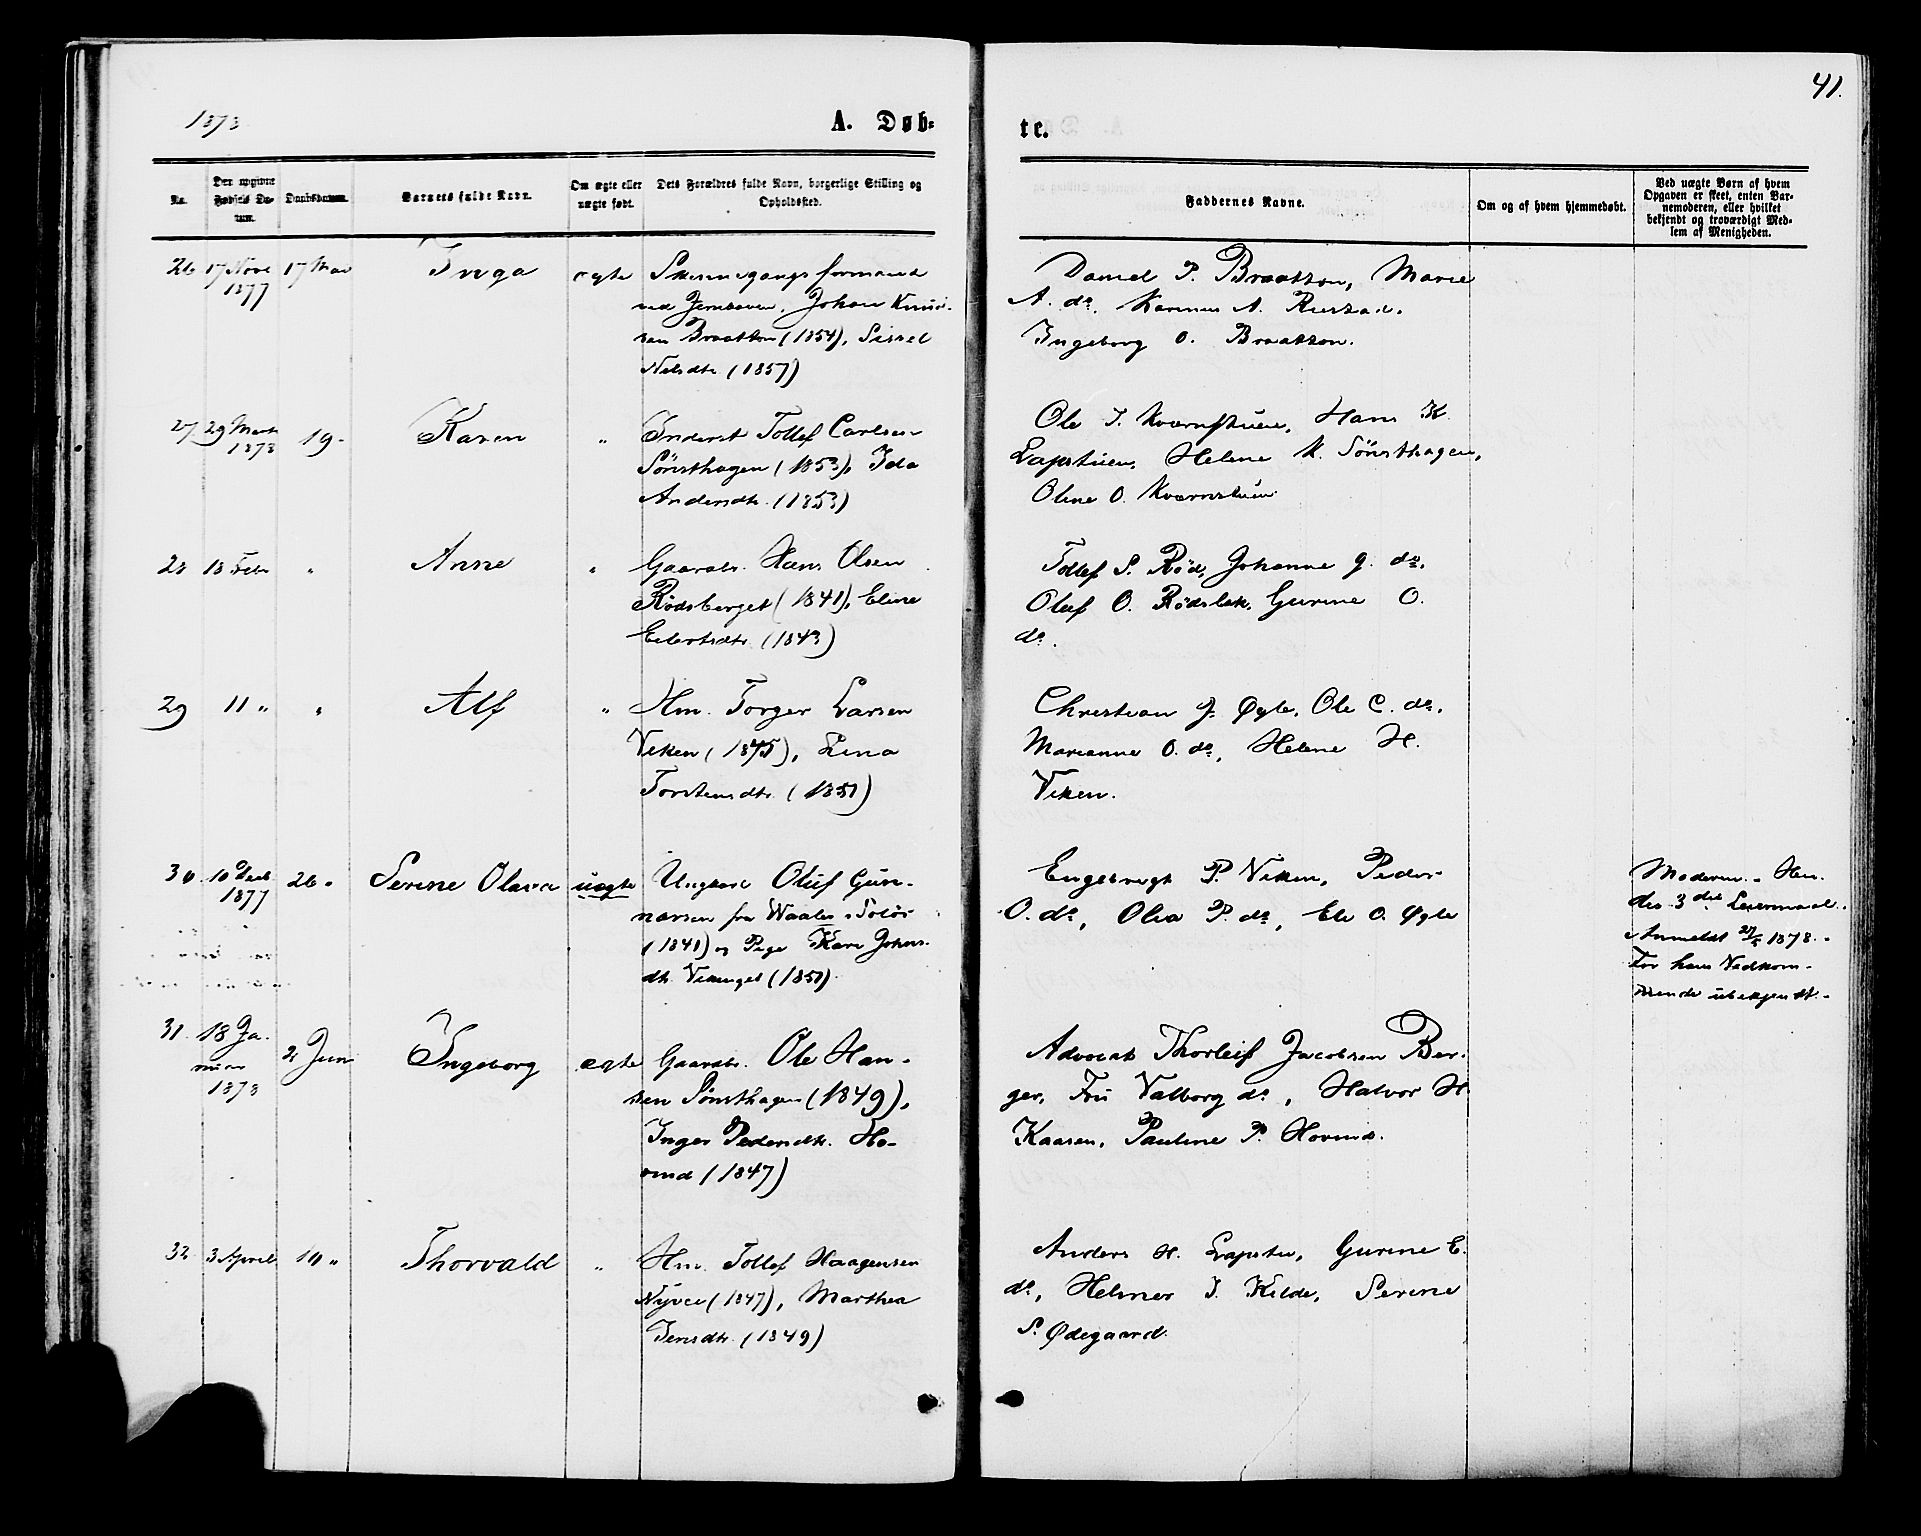 1878
A. Døb-
te.
41.
No.
Den opgivne Fødsels Datum.
Daabsdatum.
Barnets fulde Navn.
Om ægte eller uægte født.
Dets Forældres fulde Navn, borgerlige Stilling og Opholdssted.
Faddernes Navne.
Om og af hvem hjemmedøbt.
Ved uægte Børn af hvem Opgaven er skeet, enten Barnemoderen, eller hvilket bekjendt og troværdigt Medlem af Menigheden.
26 17 Nove 1877 17 Mai Inga ægte
formand
ved Jernbanen, Johan Knud-
sen Braatton (1854), Sissel
Nilsdtr. (1857)
Daniel P. Braatton, Marie
A. do. A.
Ingeborg O. Braatton.
27 29 Marts 1878 19 " Karen "
Inderst Tollef Carlsen
Sønsthagen (1853), Ida
Andersdtr. (1853)
Ole J. Kværnstuen, Hans K.
Lapstuen, Helene K. Sønsthagen,
Oline O. Kværnstuen
28 18 Febr " Anne "
Gaardbr. Hans Olsen
Rødsberget (1841), Eline
Eilertsdtr. (1843)
Tollef S. Rød, Johanne G. do.
Oluf O. Rødsbak, Gurine O.
do.
29 11 " " Alf "
Hm. Torger Larsen
Viken (1845), Lina
Torstensdtr. (1851)
Christian J. Øgle, Ole C. do.
Marianne O. do, Helene H.
Viken.
30 10 Decb 1877 26 " Serine Olava uægte
Ungkarl Oluf Gun-
narsen fra Waaler i Solør
(1841) og Pige Kari Johns-
dtr. Vikenget (1851)
Engebregt P. Viken, Peder
O. do, Olia P. do, Eli O. Øgle
Moderen. - Hen-
des 3die Leiermaal.
Anmeldt 27/5 1878. -
For ham Vedkom-
mende ubekjendt. -
31. 18 Januar 1878 2 Juni Ingeborg ægte
Gaardbr. Ole Han-
sen Sønsthagen (1849),
Inger Pedersdtr. Ho-
vind (1847)
Advocat Thorleif Jacobsen Ber-
ger, Fru Valborg do, Halvor H.
Kaasen, Pauline P. Hovind.
32 3 April 10 " Thorvald "
Hm. Tollef Haagensen
Nyvei (1847), Marthea
Jensdtr. (1849)
Anders H. Lapstu, Gurine E.
do, Helmer J. Kilde, Serine
S. Ødegaard.